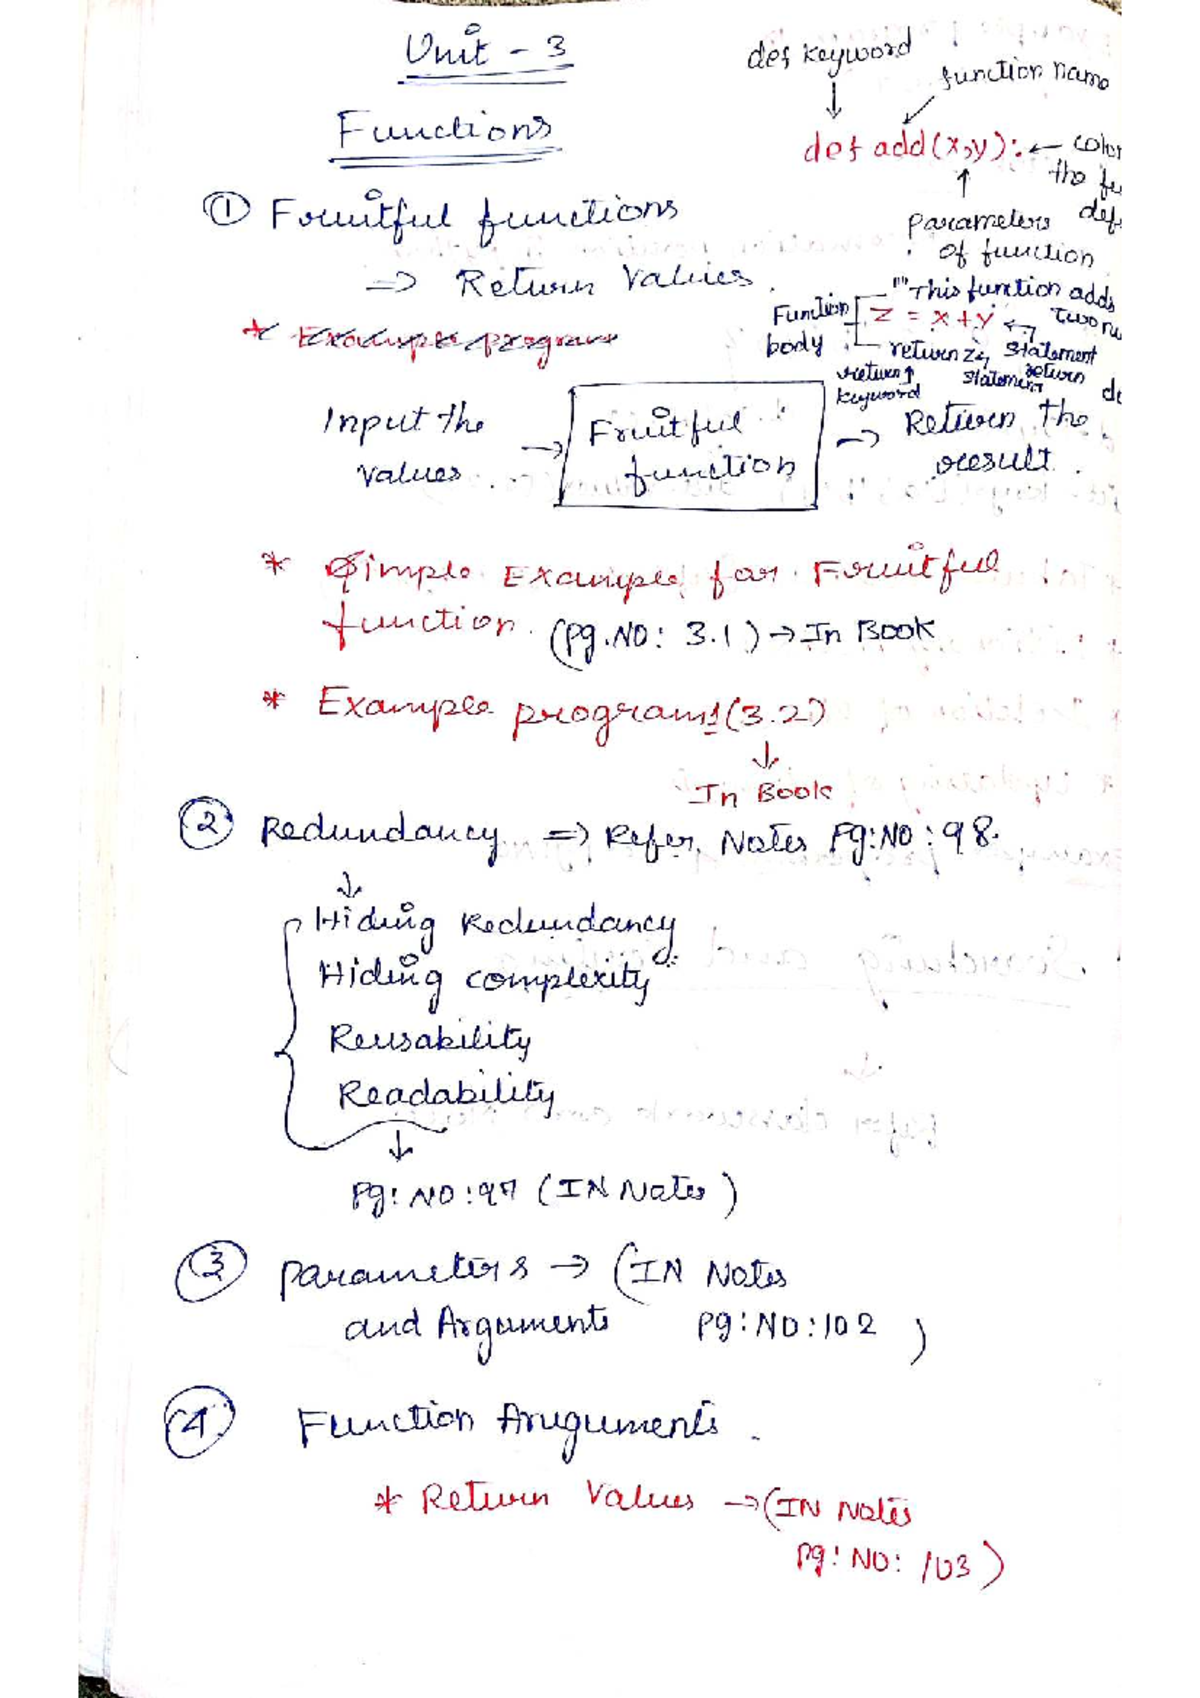 Unit - 3
Functions
def keyword
function name
def add(x,y): ←
the
parameters
of function
① Fruitful functions
=> Return Values.
* Example program
Function
body
"""This function adds
two
z = x + y ← statement
return z statement
return
keyword
return
Input the
values
→ Fruitful
function
→ Return the
result.
* Simple Example for Fruitful
function. (Pg.NO: 3.1) → In Book
* Example programs (3.2)
↓
In Book
② Redundancy => Refer Notes Pg:NO: 98.
↓
Hiding Redundancy
Hiding complexity
Reusability
Readability
↓
Pg: NO: 97 (IN Notes)
③ Parameters → (IN Notes
and Arguments Pg: NO: 102)
④ Function Aruguments.
* Return Values → (IN Notes
Pg: NO: 103)